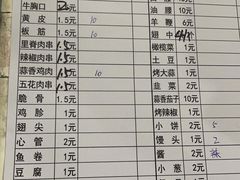 牛胸口 2元 油腰 10元
黄皮 1.5元 10 羊鞭 6元
板筋 1.5元 翅中 4元
里脊肉串 1.5元 橄榄菜 1元
辣椒肉串 1.5元 土豆 1元
蒜香鸡肉 1.5元 10 烤大蒜 1元
五花肉串 1.5元 韭菜 2元
脆骨 1.5元 蒜香茄子 10元
鸡胗 2元 烤辣椒 1元
翅尖 1元 小饼 2元 5
心管 2元 馒头 1元 2
鱼卷 1元 酱 2元
豆腐 1元 小葱 2元